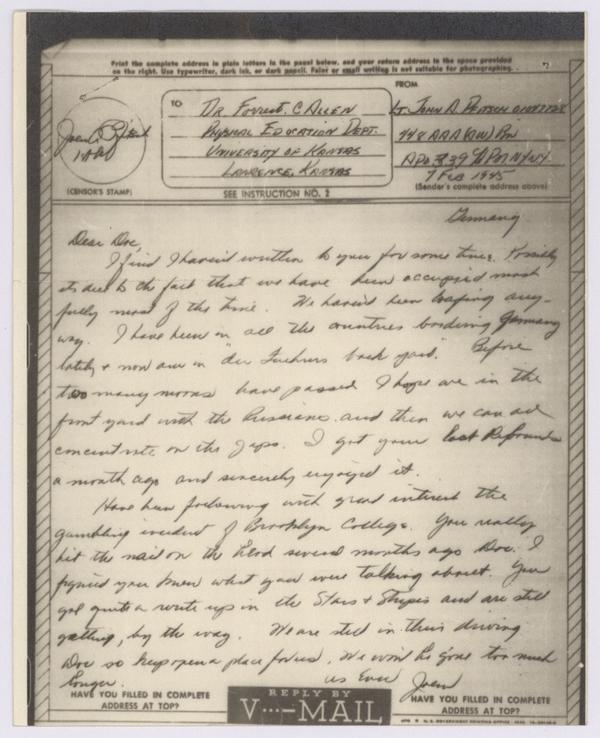 Print the complete address in plain letters in the panel below, and your return address in the space provided
on the right. Use typewriter, dark ink, or dark pencil. Faint or small writing is not suitable for photographing.
FROM
TO
Dr. Forrest. C Allen
Physical Education Dept.
University of Kansas
Lawrence, Kansas
Lt. John A.
448 AAA (AW) Bn
APO 339 % PM NY NY.
7 Feb 1945
(Sender's complete address above)
(CENSOR'S STAMP)
SEE INSTRUCTION NO. 2
Germany
Dear Doc,
I find I haven't written to you for some time. Possibly
its due to the fact that we have been occupied most
fully most of the time. We haven't been loafing any-
way. I have been in all the countries bordering Germany
lately & now am in "der Fuehrers back yard." Before
too many moons have passed I hope we are in the
front yard with the Russians and then we can all
concentrate on the Japs. I got your last Rebounds
a month ago and sincerely enjoyed it.
Have been following with great interest the
gambling incident of Brooklyn College. You really
hit the nail on the head several months ago Doc. I
figured you knew what you were talking about. You
got quite a write up in the Stars & Stripes and are still
getting, by the way. We are still in there driving
Doc so keep open a place for us. We won't be gone too much
longer.
As Ever
John
HAVE YOU FILLED IN COMPLETE
ADDRESS AT TOP?
REPLY BY
V···-MAIL
HAVE YOU FILLED IN COMPLETE
ADDRESS AT TOP?